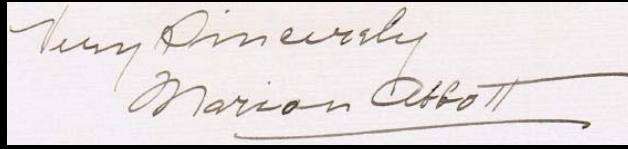 Very Sincerely
Marion Abbott